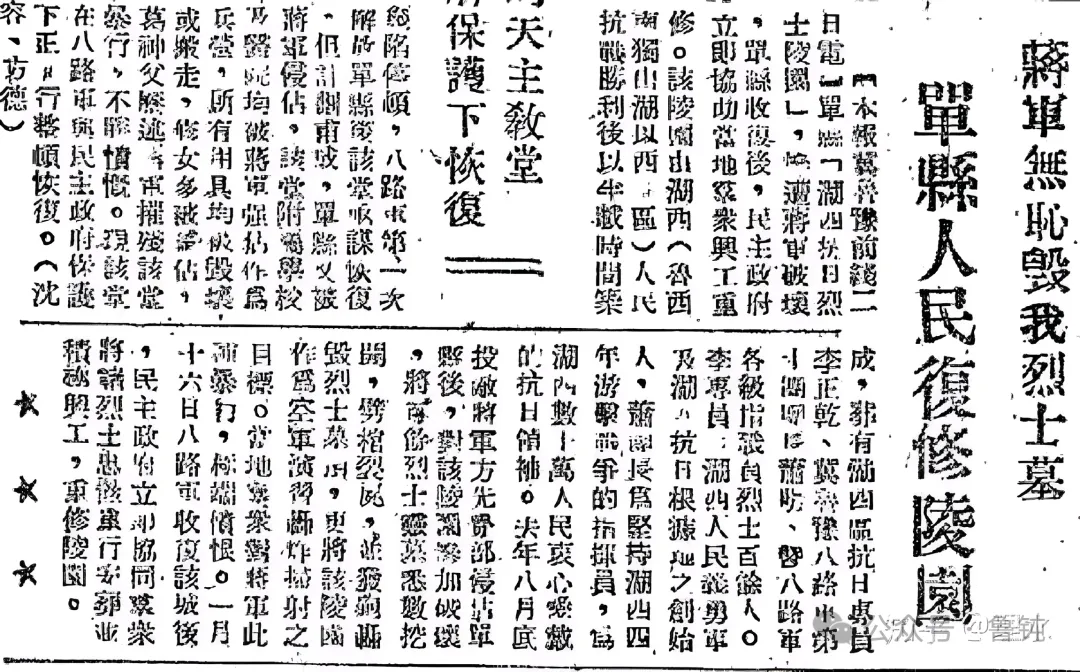 蔣軍無恥毀我烈士墓
單縣人民復修陵園
【本報冀魯豫前綫二
日電】單縣「湖西抗日烈
士陵園」,慘遭蔣軍破壞
,單縣收復後,民主政府
立卽協助當地羣衆興工重
修。該陵園由湖西(魯西
南獨山湖以西 區)人民
抗戰勝利後以半載時間築
成,葬有湖西區抗日專員
李正乾、冀魯豫八路軍第
十團團長蕭明、暨八路軍
各級指戰員烈士百餘人。
李專員 湖西人民義勇軍
及湖西抗日根據地之創始
人,蕭團長爲堅持湖西四
年游擊戰爭的指揮員,爲
湖西數十萬人民衷心愛戴
的抗日領袖。去年八月底
投敵蔣軍方先覺部侵佔單
縣後,對該陵園慘加破壞
,將 份烈士靈墓悉數挖
開,劈棺裂屍,並 轟
毀烈士墓 ,更將該陵園
作爲空軍演習轟炸掃射之
目標。當地羣衆對蔣軍此
種暴行,極端憤恨。一月
十六日八路軍收復該城後
,民主政府立卽協同羣衆
將諸烈士忠骸重行安葬並
積極興工,重修陵園。
天主教堂
保護下恢復
陷停頓,八路軍第一次
解放單縣後該堂 謀恢復
,但計劃甫成,單縣又被
蔣軍侵佔,該堂附屬學校
及醫院均被蔣軍强佔作爲
兵營,所有用具均被毀壞
或搬走,修女多被 佔,
葛神父 述蔣軍摧殘該堂
暴行,不勝憤慨。現該堂
在八路軍與民主政府保護
下正 行整頓恢復。(沈
容、方德)
公众号 @鲁钟